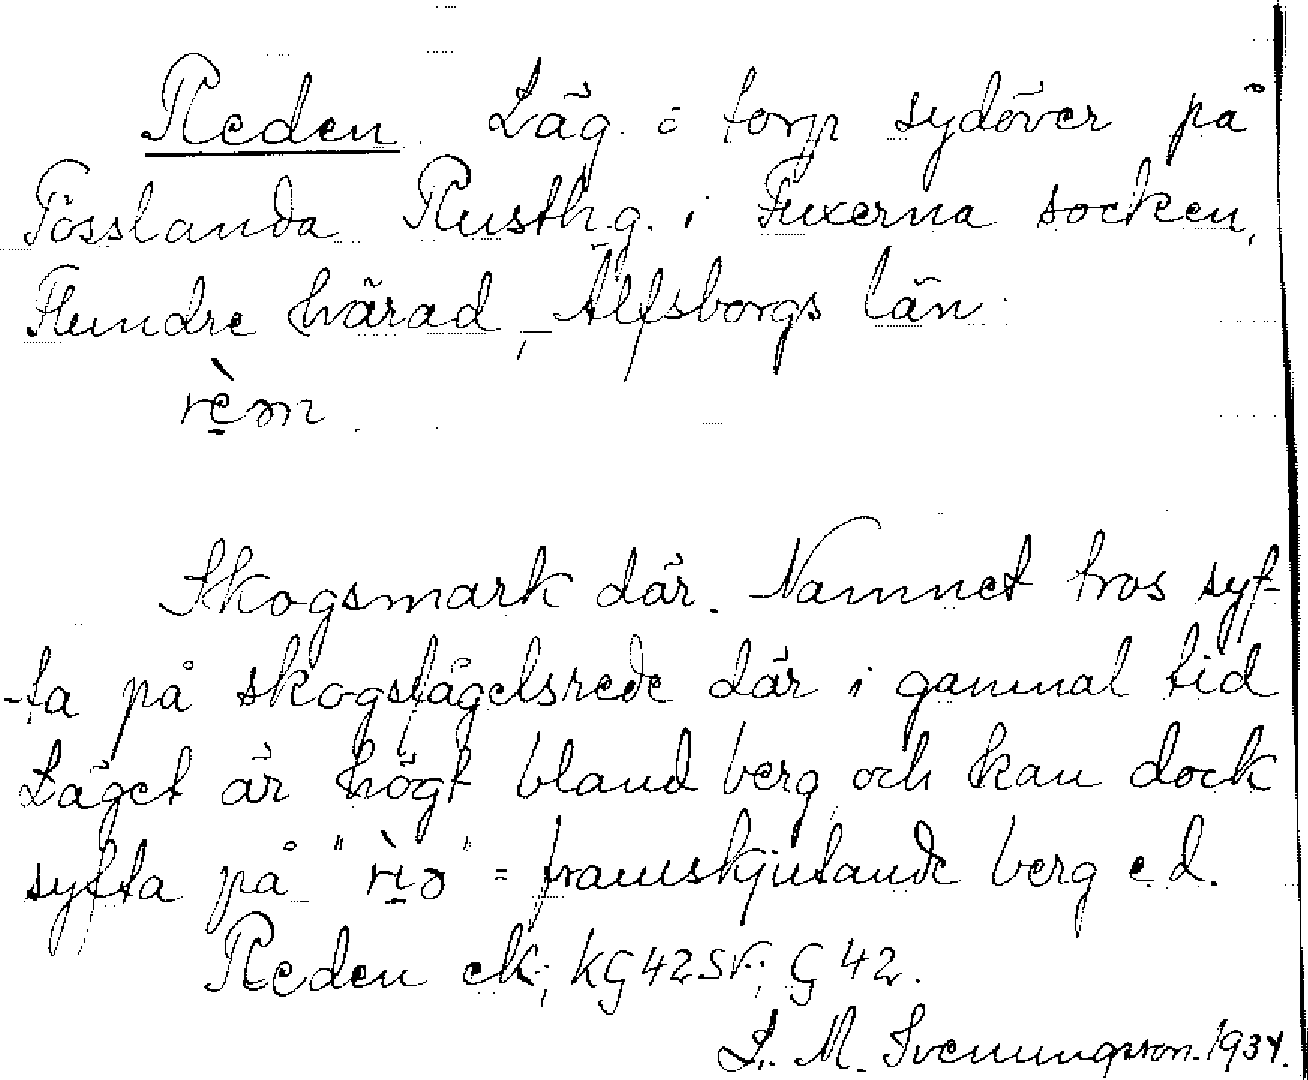 Reden. Läg. = torp sydöver på
Tösslanda Rusthg. i Fuxerna socken,
Flundre härad, Älfsborgs län.
rèən.
Skogsmark där. Namnet tros syf-
-ta på skogsfågelsrede där i gammal tid
Läget är högt bland berg och kan dock
syfta på "rìə" = framskjutande berg e.d.
Reden ek; KG42SV; G 42.
L. M. Svenungsson. 1934.